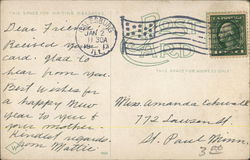 THIS SPACE FOR WRITING MESSAGES
Dear Friend
Received your
card. Glad to
hear from you.
Best wishes for
a happy New
year to you &
your mother.
Kindest regards
from Mattie
JAN 2
11 30A
ILL.
CARD
THIS SPACE FOR ADDRESS ONLY
Miss Amanda
772 Lawson St.
St. Paul Minn
3.00